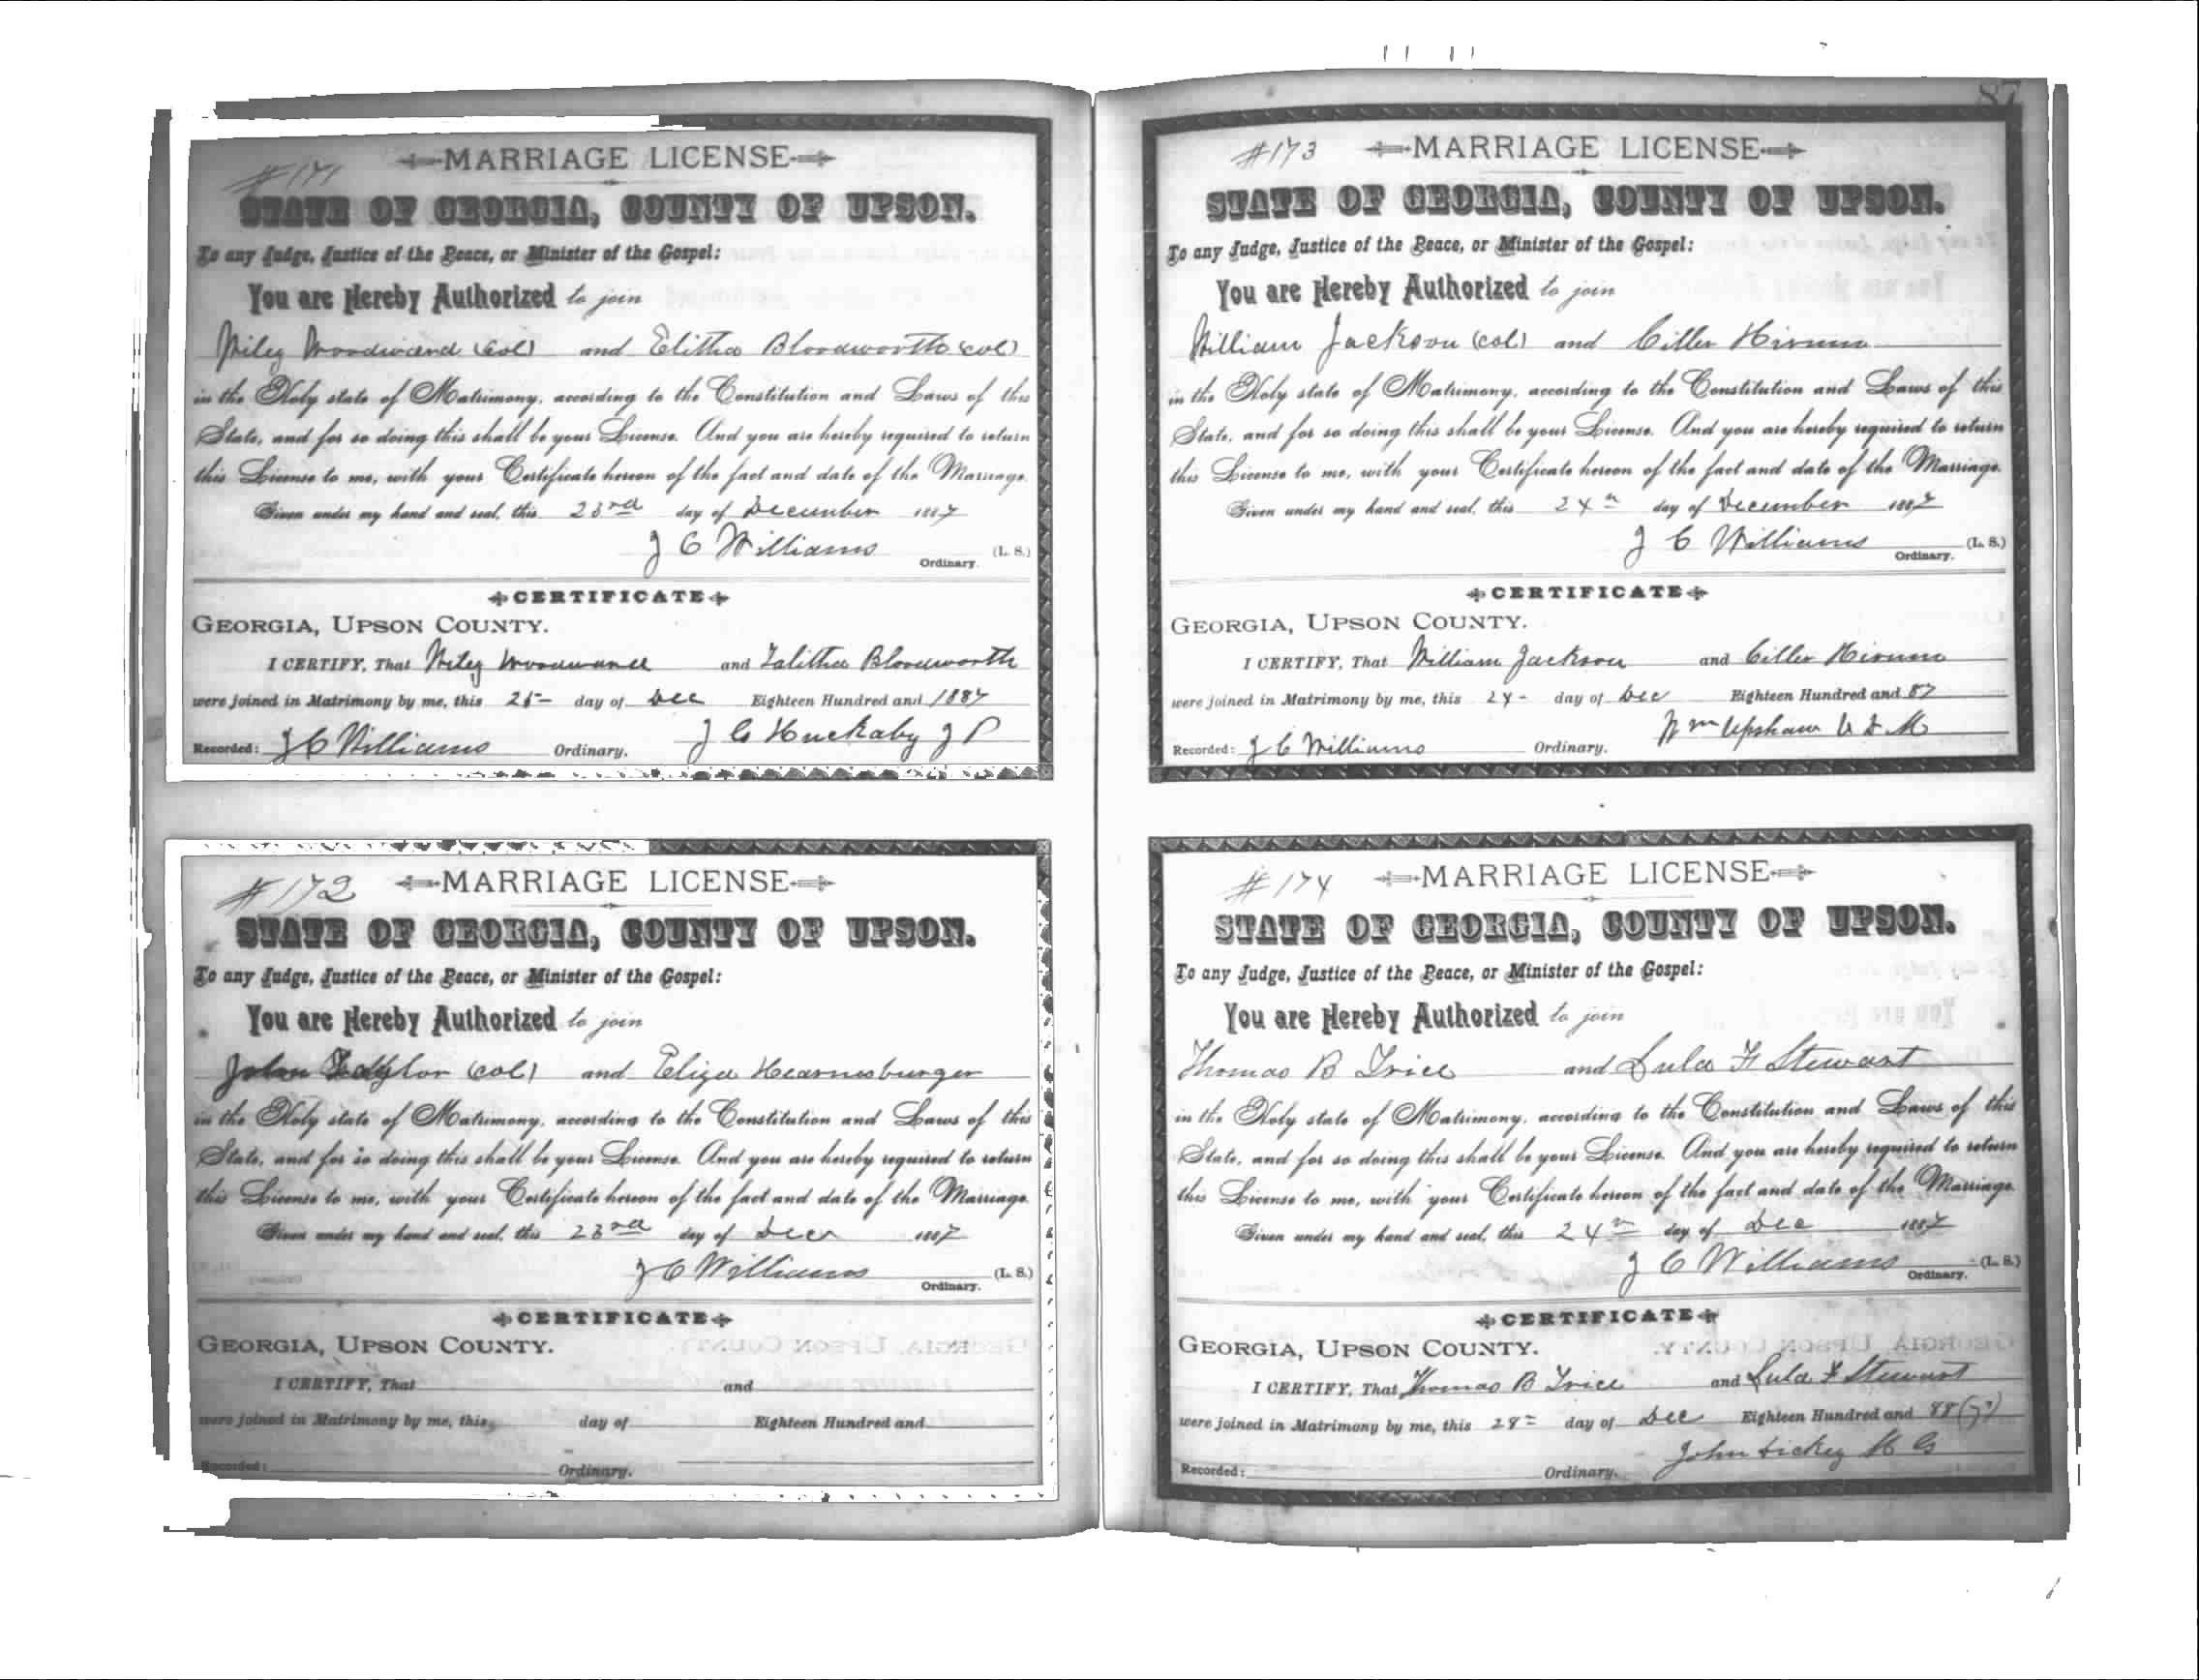 87
#171 MARRIAGE LICENSE
STATE OF GEORGIA, COUNTY OF UPSON.
To any Judge, Justice of the Peace, or Minister of the Gospel:
You are Hereby Authorized to join
Wiley Woodward (col) and Elitha Bloodworth (col)
in the Holy state of Matrimony, according to the Constitution and Laws of this
State, and for so doing this shall be your License. And you are hereby required to return
this License to me, with your Certificate hereon of the fact and date of the Marriage.
Given under my hand and seal, this 23rd day of December 1887
J C Williams (L. S.)
Ordinary.
CERTIFICATE
GEORGIA, UPSON COUNTY.
I CERTIFY, That Wiley Woodward and Talitha Bloodworth
were joined in Matrimony by me, this 25 day of Dec Eighteen Hundred and 1887
Recorded: J C Williams Ordinary. J G Huckaby J P
#172 MARRIAGE LICENSE
STATE OF GEORGIA, COUNTY OF UPSON.
To any Judge, Justice of the Peace, or Minister of the Gospel:
You are Hereby Authorized to join
John Taylor (col) and Eliza Hearnsburger
in the Holy state of Matrimony, according to the Constitution and Laws of this
State, and for so doing this shall be your License. And you are hereby required to return
this License to me, with your Certificate hereon of the fact and date of the Marriage.
Given under my hand and seal, this 23rd day of Dec 1887
J C Williams (L. S.)
Ordinary.
CERTIFICATE
GEORGIA, UPSON COUNTY.
I CERTIFY, That and
were joined in Matrimony by me, this day of Eighteen Hundred and
Recorded: Ordinary.
#173 MARRIAGE LICENSE
STATE OF GEORGIA, COUNTY OF UPSON.
To any Judge, Justice of the Peace, or Minister of the Gospel:
You are Hereby Authorized to join
William Jackson (col) and Ciller
in the Holy state of Matrimony, according to the Constitution and Laws of this
State, and for so doing this shall be your License. And you are hereby required to return
this License to me, with your Certificate hereon of the fact and date of the Marriage.
Given under my hand and seal, this 24th day of December 1887
J C Williams (L. S.)
Ordinary.
CERTIFICATE
GEORGIA, UPSON COUNTY.
I CERTIFY, That William Jackson and Ciller
were joined in Matrimony by me, this 24 day of Dec Eighteen Hundred and 87
Wm Upshaw V D M
Recorded: J C Williams Ordinary.
#174 MARRIAGE LICENSE
STATE OF GEORGIA, COUNTY OF UPSON.
To any Judge, Justice of the Peace, or Minister of the Gospel:
You are Hereby Authorized to join
Thomas B Trice and Lula F Stewart
in the Holy state of Matrimony, according to the Constitution and Laws of this
State, and for so doing this shall be your License. And you are hereby required to return
this License to me, with your Certificate hereon of the fact and date of the Marriage.
Given under my hand and seal, this 24th day of Dec 1887
J C Williams (L. S.)
Ordinary.
CERTIFICATE
GEORGIA, UPSON COUNTY.
I CERTIFY, That Thomas B Trice and Lula F Stewart
were joined in Matrimony by me, this 28 day of Dec Eighteen Hundred and 88 (7?)
John Hickey M G
Recorded: Ordinary.